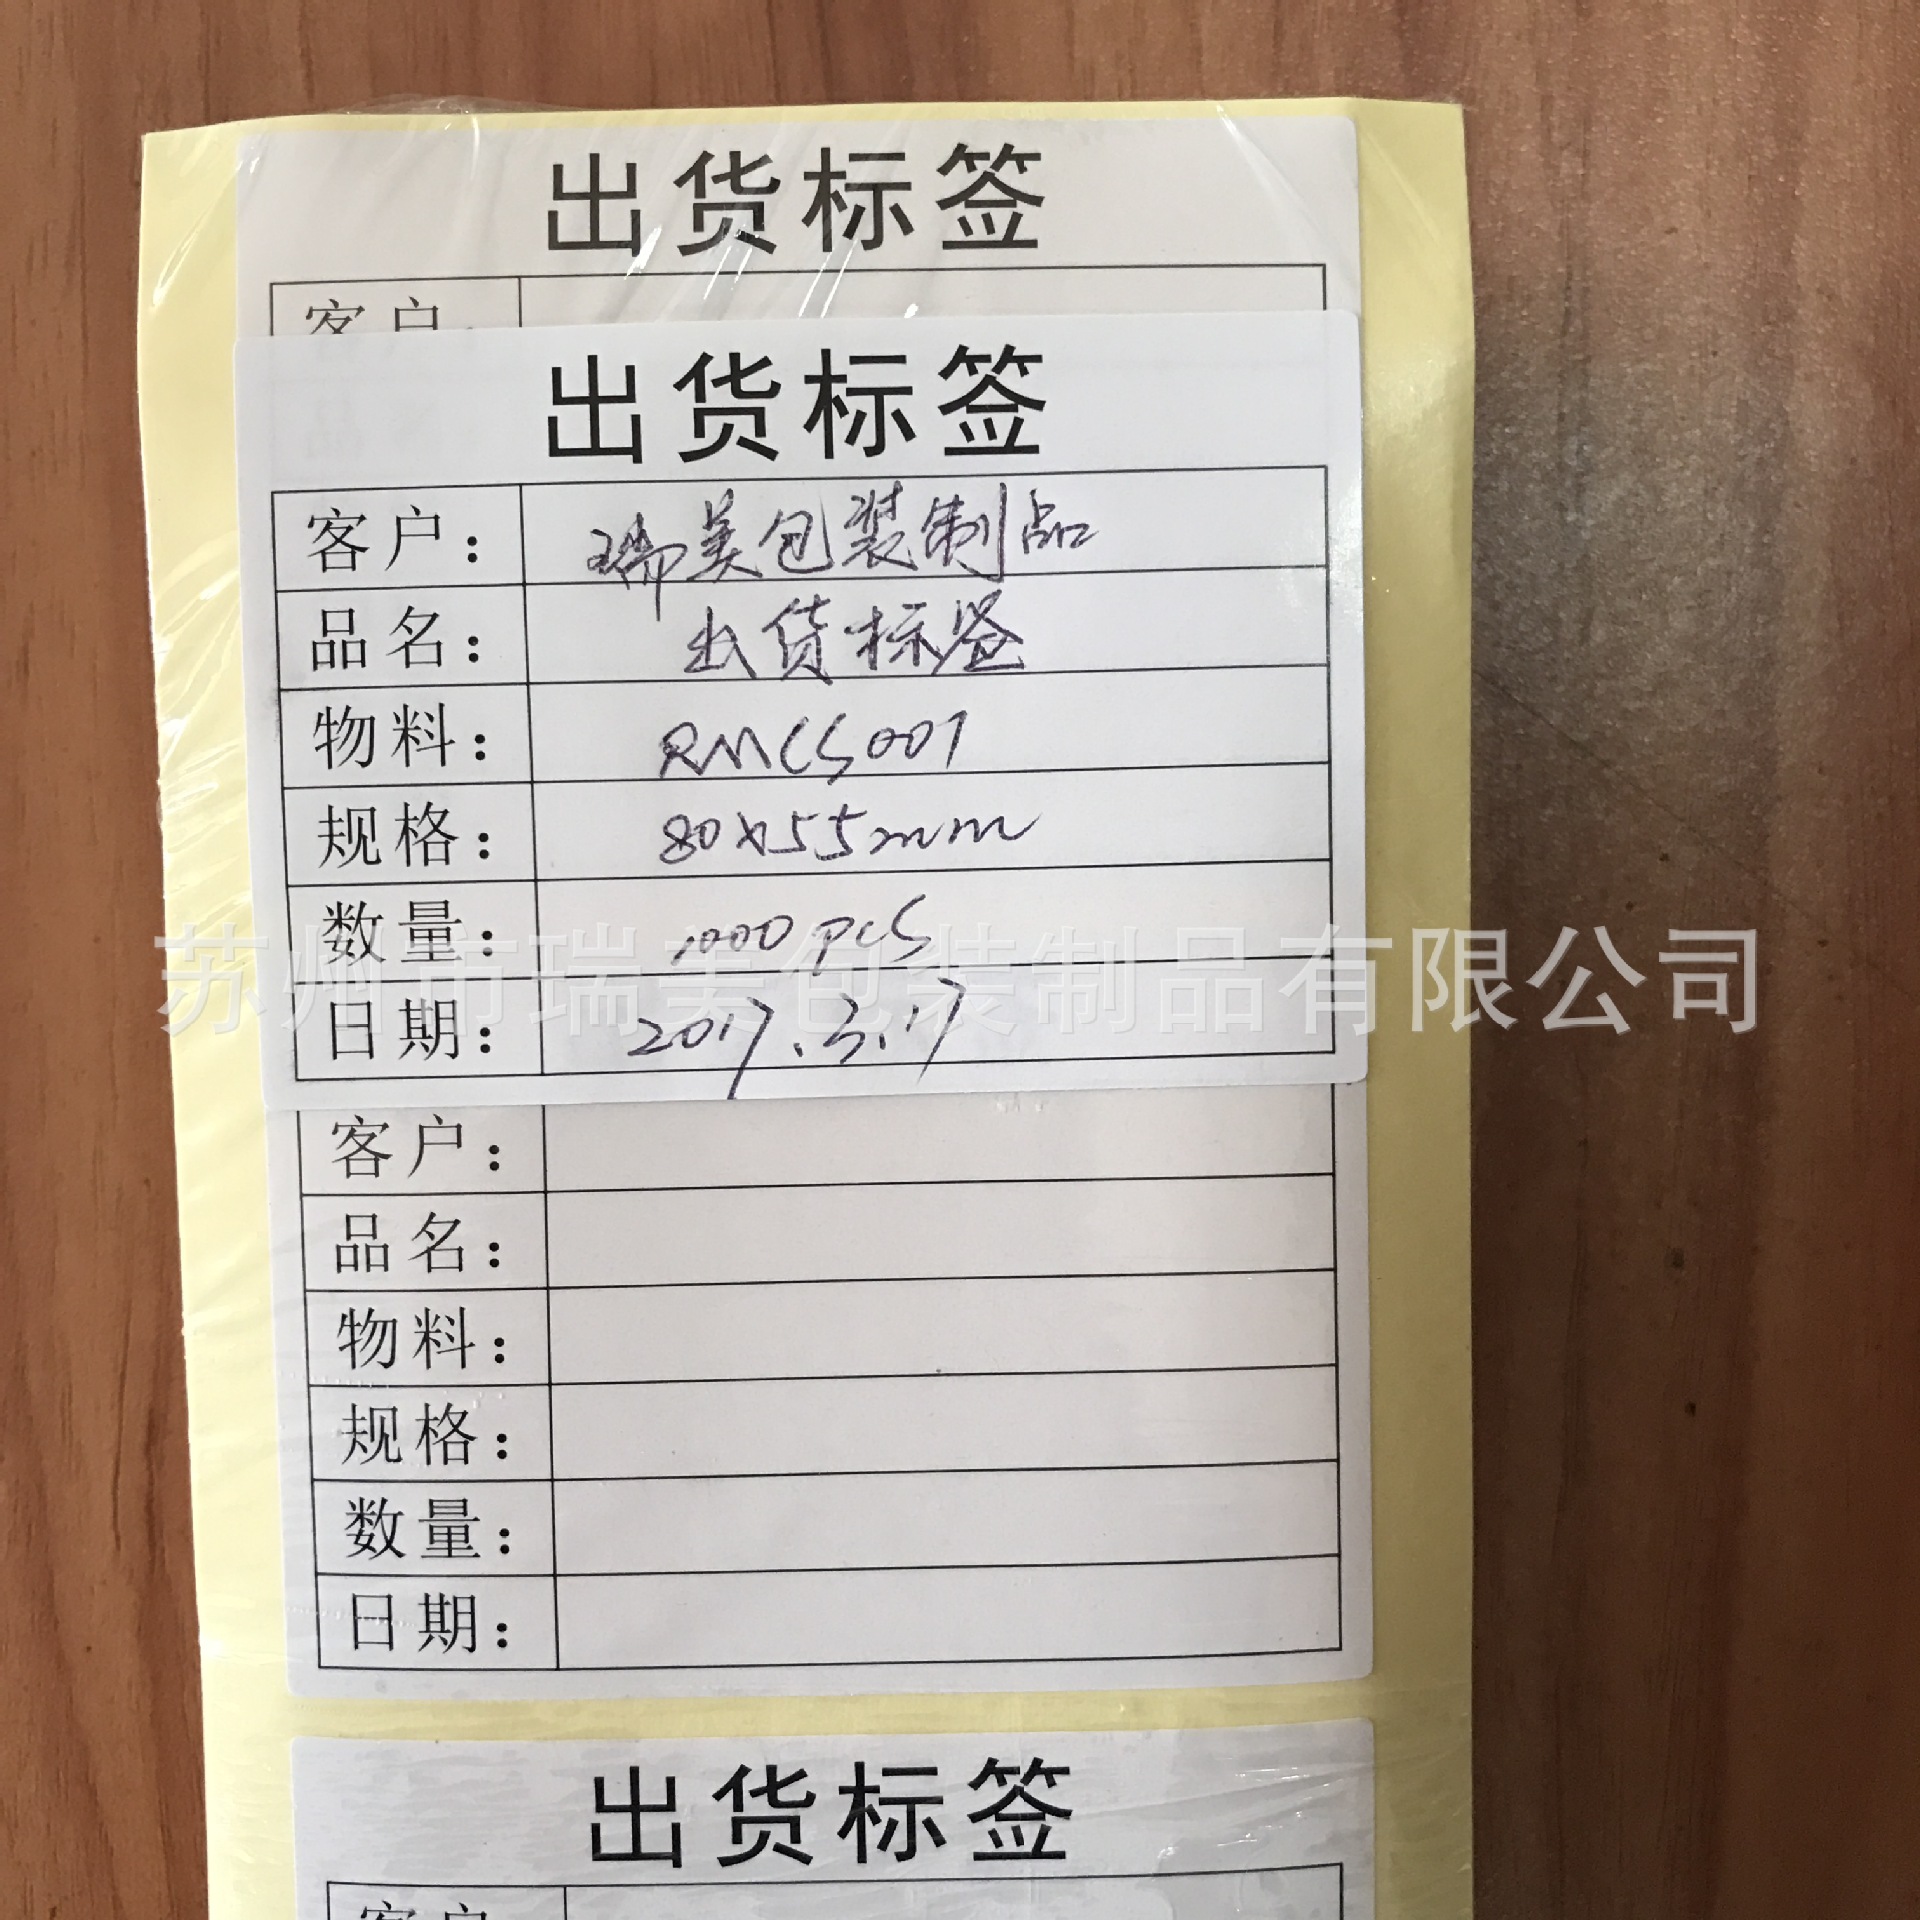 出货标签
客户:
出货标签
客户: 瑞美包装制品
品名: 出货标签
物料: RMCS001
规格: 80x55mm
数量: 1000 pcs
苏州市瑞美包装制品有限公司
日期: 2017.3.17
客户:
品名:
物料:
规格:
数量:
日期:
出货标签
客户